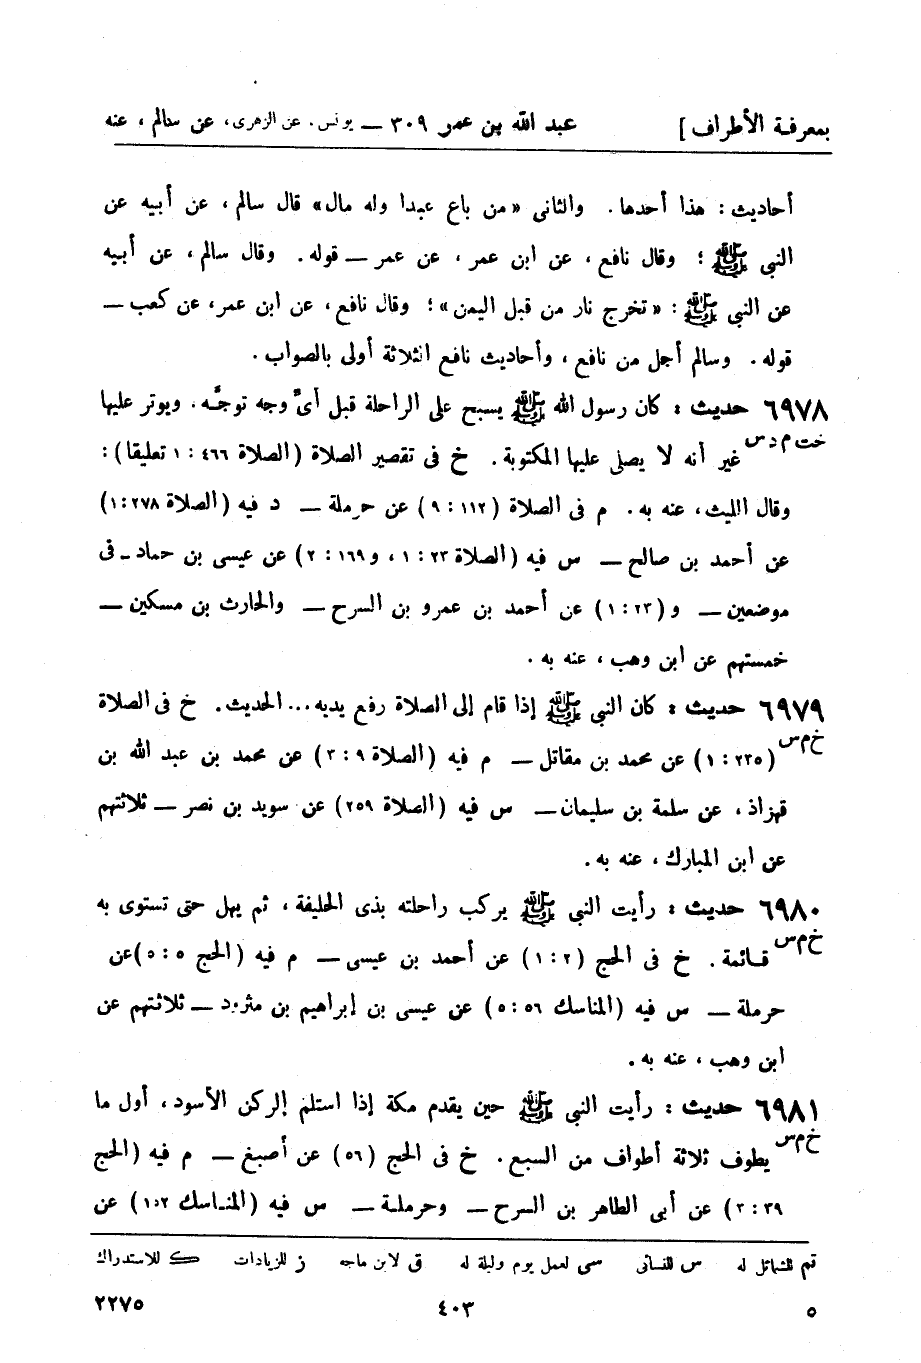 بمعرفة الأطراف ] عبد الله بن عمر ٣٠٩ — يونس، عن الزهرى، عن سالم ، عنه
أحاديث : هذا أحدها . والثانى « من باع عبدا وله مال » قال سالم ، عن أبيه عن
النبى ﷺ ؛ وقال نافع ، عن ابن عمر ، عن عمر — قوله . وقال سالم ، عن أبيه
عن النبى ﷺ : « تخرج نار من قبل اليمن » ؛ وقال نافع ، عن ابن عمر، عن كعب —
قوله . وسالم أجل من نافع ، وأحاديث نافع الثلاثة أولى بالصواب .
٦٩٧٨ حديث : كان رسول الله ﷺ يسبح على الراحلة قبل أىّ وجه توجّه . ويوتر عليها
خت م د س غير أنه لا يصلى عليها المكتوبة . خ فى تقصير الصلاة (الصلاة ٤٦٦ : ١ تعليقا) :
وقال الليث، عنه به . م فى الصلاة (١١٢ : ٩) عن حرملة — د فيه (الصلاة ٢٧٨ : ١)
عن أحمد بن صالح — س فيه (الصلاة ٢٣ : ١ ، و١٦٩ : ٢) عن عيسى بن حماد ـ فى
موضعين — و (٢٣ : ١) عن أحمد بن عمرو بن السرح — والحارث بن مسكين —
خمستهم عن ابن وهب ، عنه به .
٦٩٧٩ حديث : كان النبى ﷺ إذا قام إلى الصلاة رفع يديه ... الحديث . خ فى الصلاة
خ م س (٢٣٥ : ١) عن محمد بن مقاتل — م فيه (الصلاة ٩ : ٣) عن محمد بن عبد الله بن
قهزاذ ، عن سلمة بن سليمان — س فيه (الصلاة ٢٥٩) عن سويد بن نصر — ثلاثتهم
عن ابن المبارك ، عنه به .
٦٩٨٠ حديث : رأيت النبى ﷺ يركب راحلته بذى الحليفة ، ثم يهل حتى تستوى به
خ م س قائمة . خ فى الحج (٢ : ١) عن أحمد بن عيسى — م فيه (الحج ٥ : ٥) عن
حرملة — س فيه (المناسك ٥٦ : ٥) عن عيسى بن إبراهيم بن مثرود — ثلاثتهم عن
ابن وهب ، عنه به .
٦٩٨١ حديث : رأيت النبى ﷺ حين يقدم مكة إذا استلم الركن الأسود ، أول ما
خ م س يطوف ثلاثة أطواف من السبع . خ فى الحج (٥٦) عن أصبغ — م فيه (الحج
٣٩ : ٣) عن أبى الطاهر بن السرح — وحرملة — س فيه (المناسك ١٥٢) عن
تم للشمائل له س للنسائى سى لعمل يوم وليلة له ق لابن ماجه ز للزيادات ك للاستدراك
٥ ٤٠٣ ٢٢٧٥